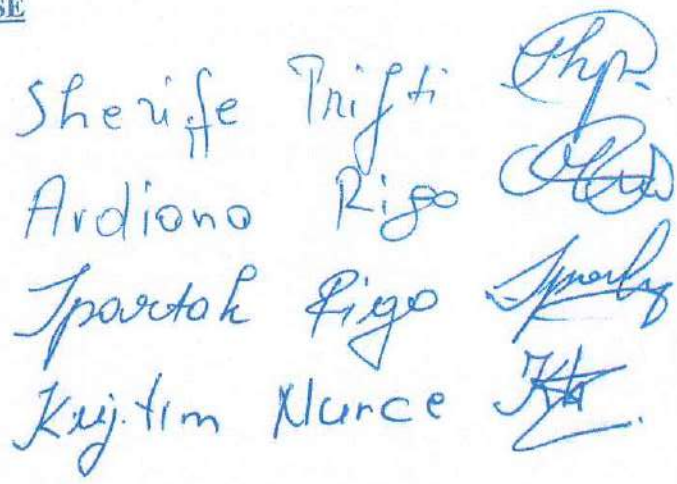 SE
Sherife Prifti
Ardiana Rigo
Spartak Rigo
Kujtim Nurce